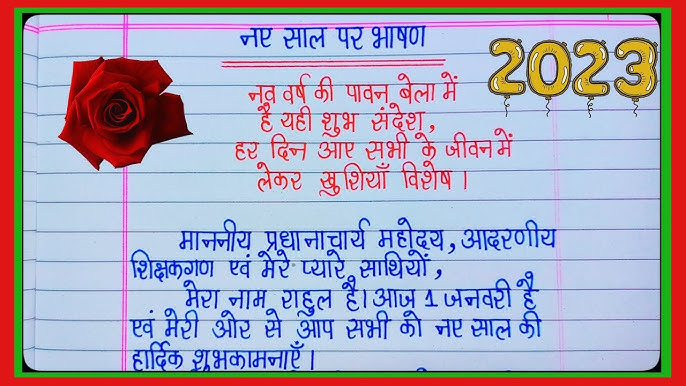 नए साल पर भाषण
2023
नव वर्ष की पावन बेला में
है यही शुभ संदेश,
हर दिन आए सभी के जीवन में
लेकर खुशियाँ विशेष।
माननीय प्रधानाचार्य महोदय, आदरणीय
शिक्षकगण एवं मेरे प्यारे साथियों,
मेरा नाम राहुल है। आज 1 जनवरी है
एवं मेरी ओर से आप सभी को नए साल की
हार्दिक शुभकामनाएँ।